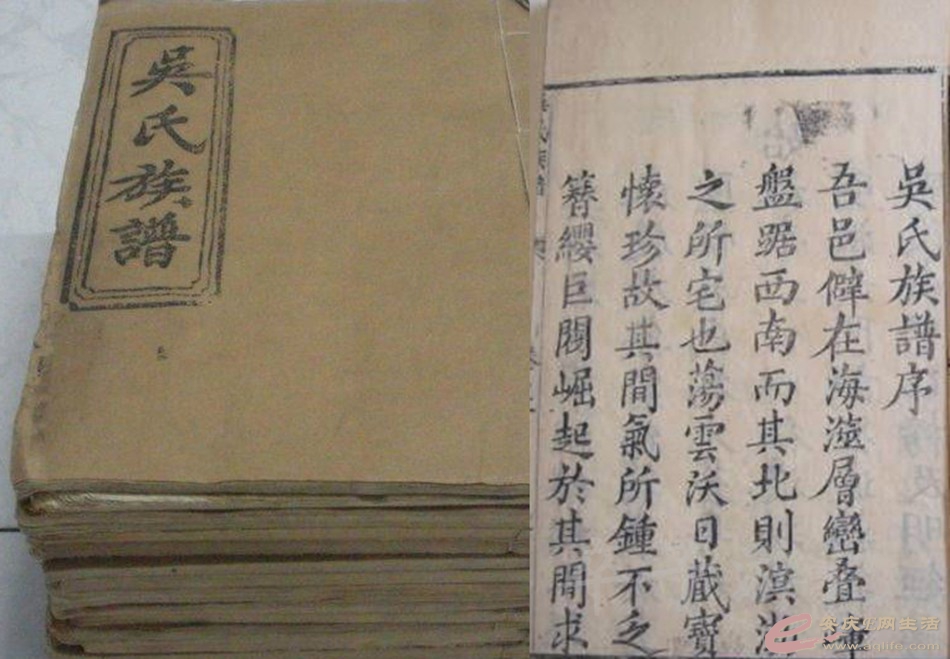 吳氏族譜
吳氏族譜序
吾邑僻在海澨層巒叠
盤踞西南而其北則溟
之所宅也蕩雲沃日蔵寶
懷珍故其間氣所鍾不乏
簪纓巨閥崛起於其間求
族譜
安庆e网生活
www.aqlife.com